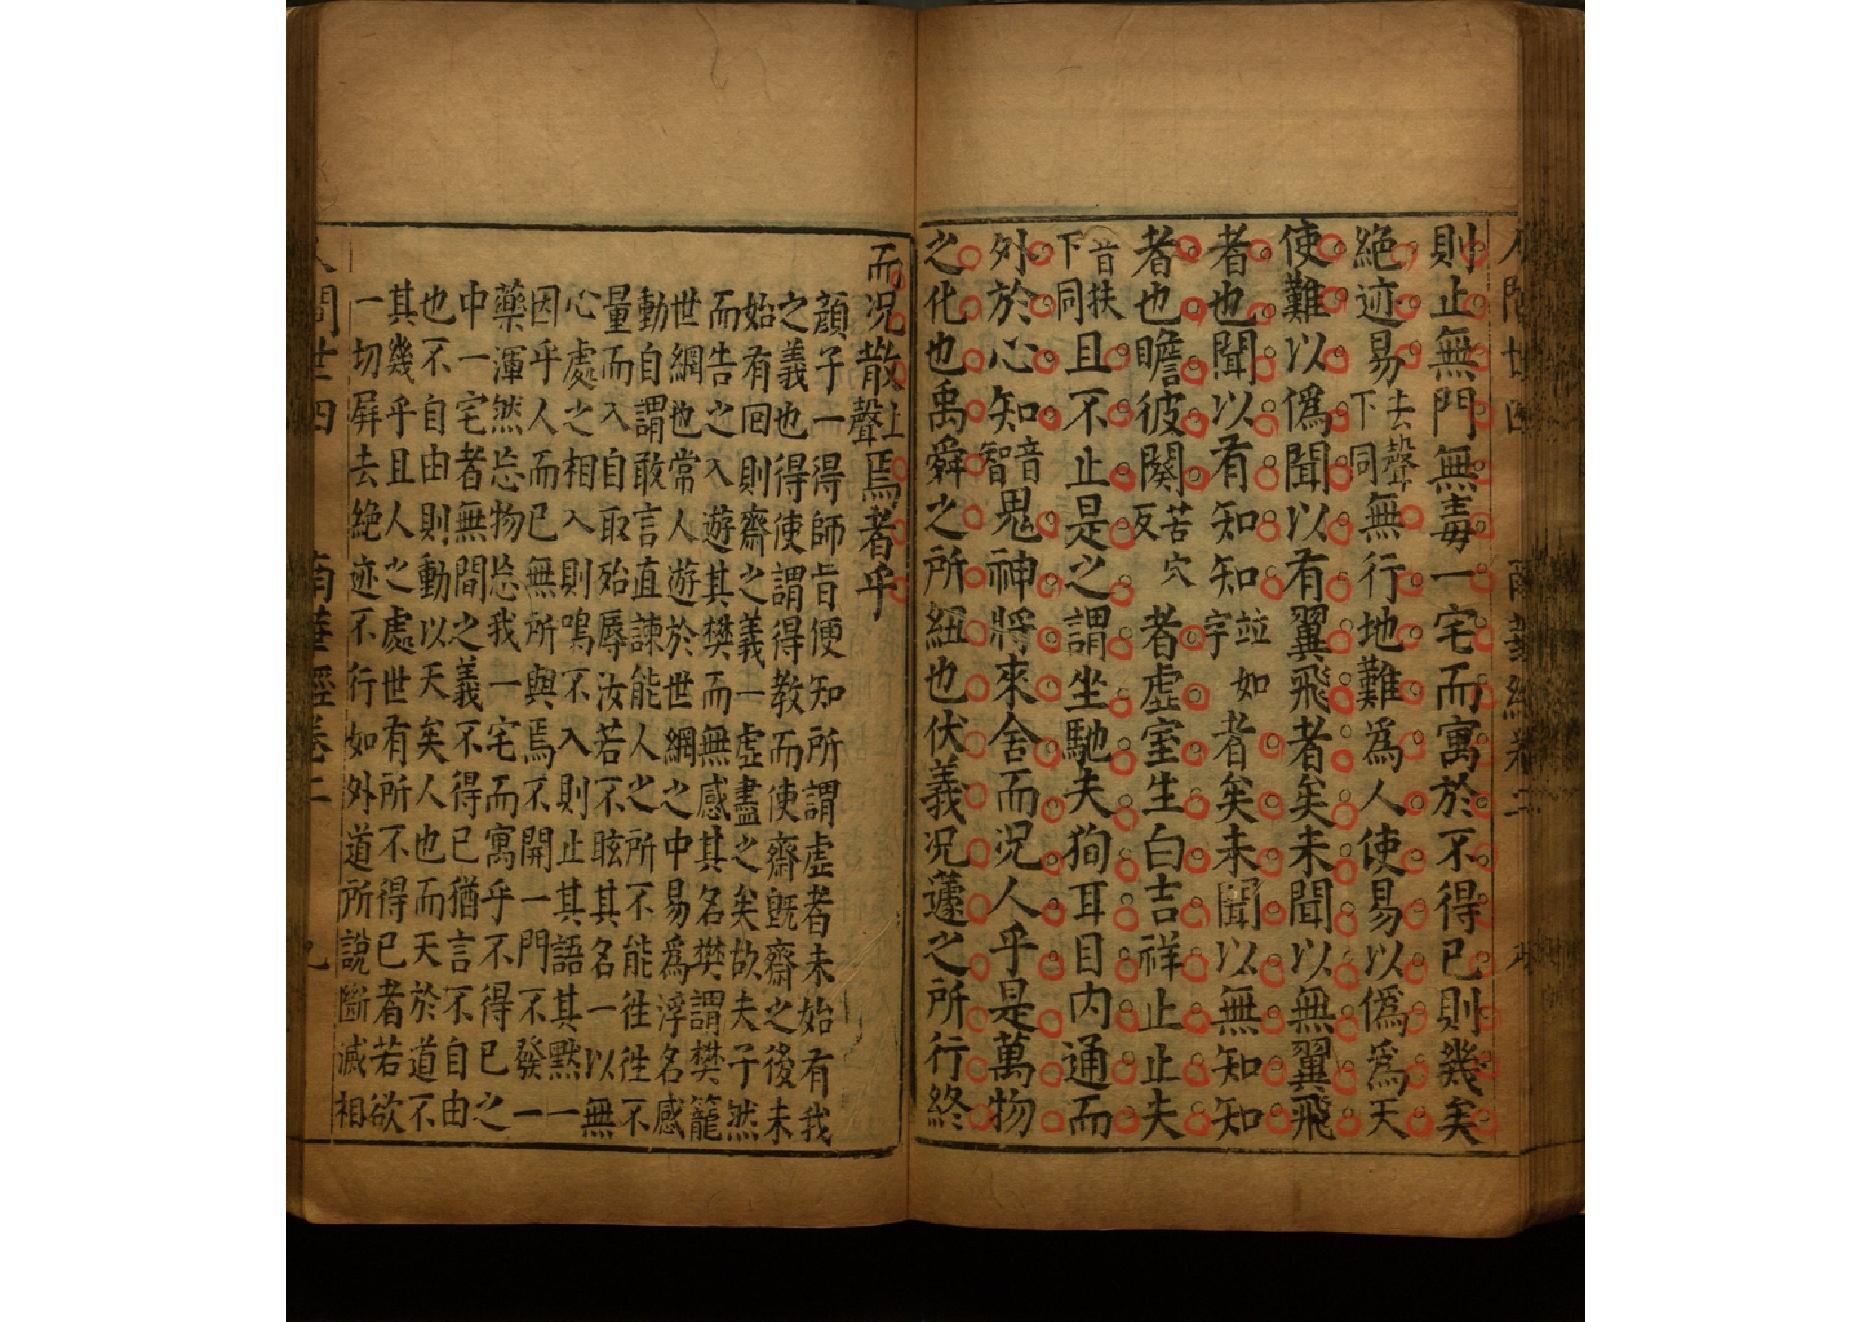 則止無門無毒一宅而寓於不得已則幾矣
絕迹易去聲下同無行地難爲人使易以僞爲天
使難以僞聞以有翼飛者矣未聞以無翼飛
者也聞以有知知字並如者矣未聞以無知知
者也瞻彼闋苦穴反者虛室生白吉祥止止夫
音扶下同且不止是之謂坐馳夫狥耳目内通而
外於心知音智鬼神將來舍而況人乎是萬物
之化也禹舜之所紐也伏義况蘧之所行終
而况散上聲焉者乎
顏子一得師旨便知所謂虛者未始有我
之義也得使謂得教而使齋旣齋之後未
始有回則齋之義一虛盡之矣故夫子然
而告之入遊其樊而無感其名樊謂樊籠
世網也常人遊於世網之中易爲浮名感
動自謂敢言直諫能人之所不能徃徃不
量而入自取殆辱汝若不眩其名一以無
心處之相入則鳴不入則止其語其默一
因乎人而已無所與焉不開一門不發一
藥渾然忘物忘我一宅而寓乎不得已之
中一宅者無間之義不得已猶言不自由
也不自由則動以天矣人也而天於道不
其幾乎且人之處世有所不得已者若欲
一切屛去絕迹不行如外道所說斷滅相
人間世四 南華經卷二 九